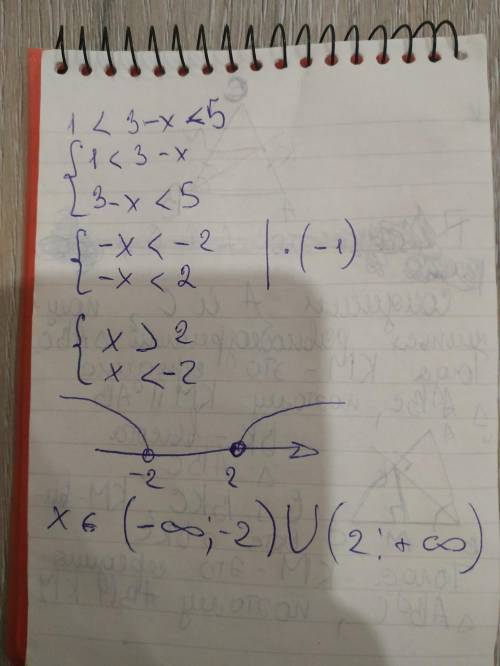 1 < 3-x < 5
{ 1 < 3-x
3-x < 5
{ -x < -2 | · (-1)
-x < 2
{ x > 2
x < -2
-2 2
x ∈ (-∞; -2) ∪ (2; +∞)